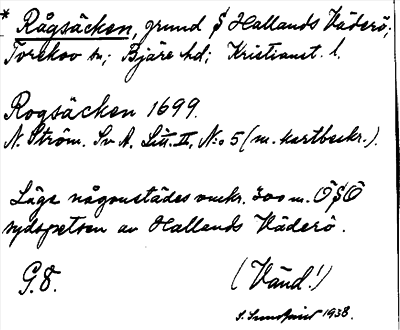 * Rågsäcken, grund S Hallands Väderö;
Torekov sn; Bjäre hd; Kristianst. l.
Rogsäcken 1699.
N. Ström. Sv A. Litt. II, No 5 (m. kartbeskr.).
Läge någonstädes omkr. 300 m. OSO
sydspetsen av Hallands Väderö.
G.8. (Vänd!)
S. Sundqvist 1938.